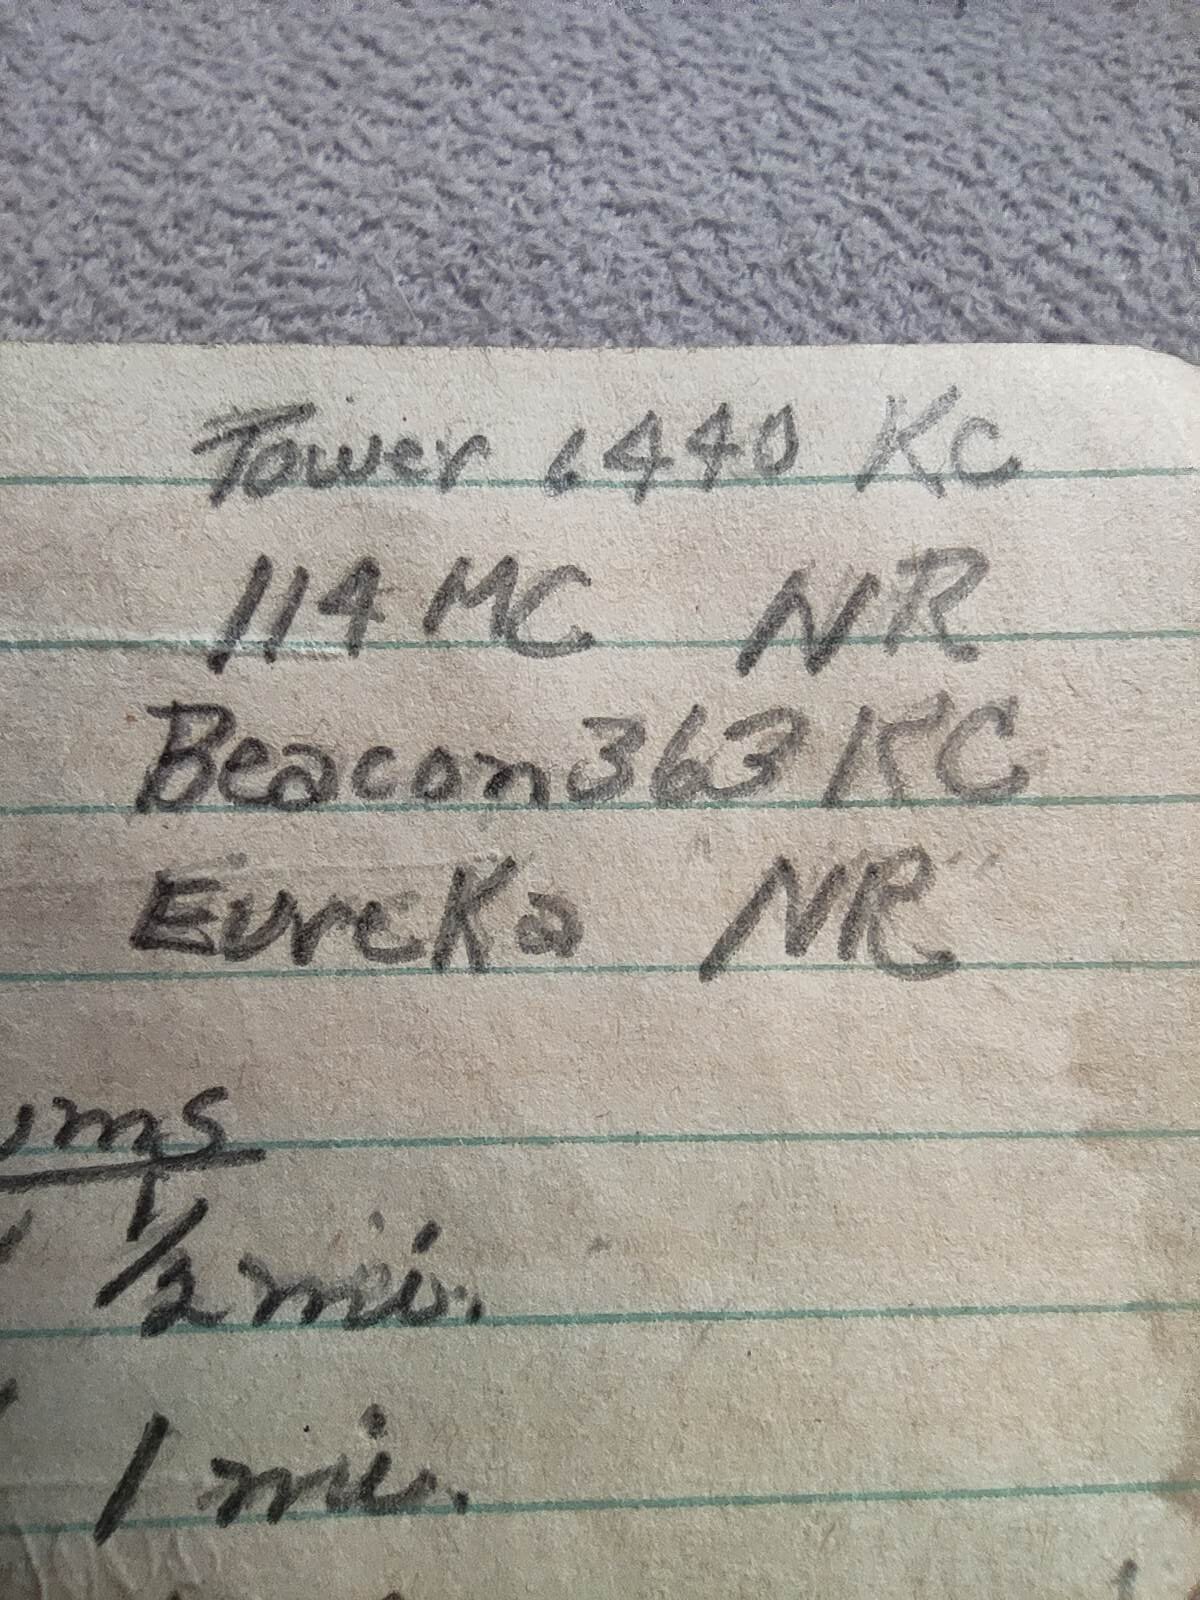 Tower 6440 KC
114 MC NR
Beacon 363 KC
Eureka "NR"
ums
1/2 mi.
1 mi.